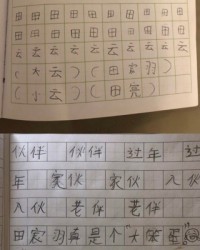 田 田 田 田 田 田 田 田 田
田 田 田 田 田 田 田 田 田
云 云 云 云 云 云 云 云 云
( 大 云 ) ( 田 宸 羽 )
( 小 云 ) ( 田 亮 )
伙伴 伙伴 过年 过
年 家伙 家伙 入伙
入伙 老伴 老伴
田宸羽真是个“大笨蛋”